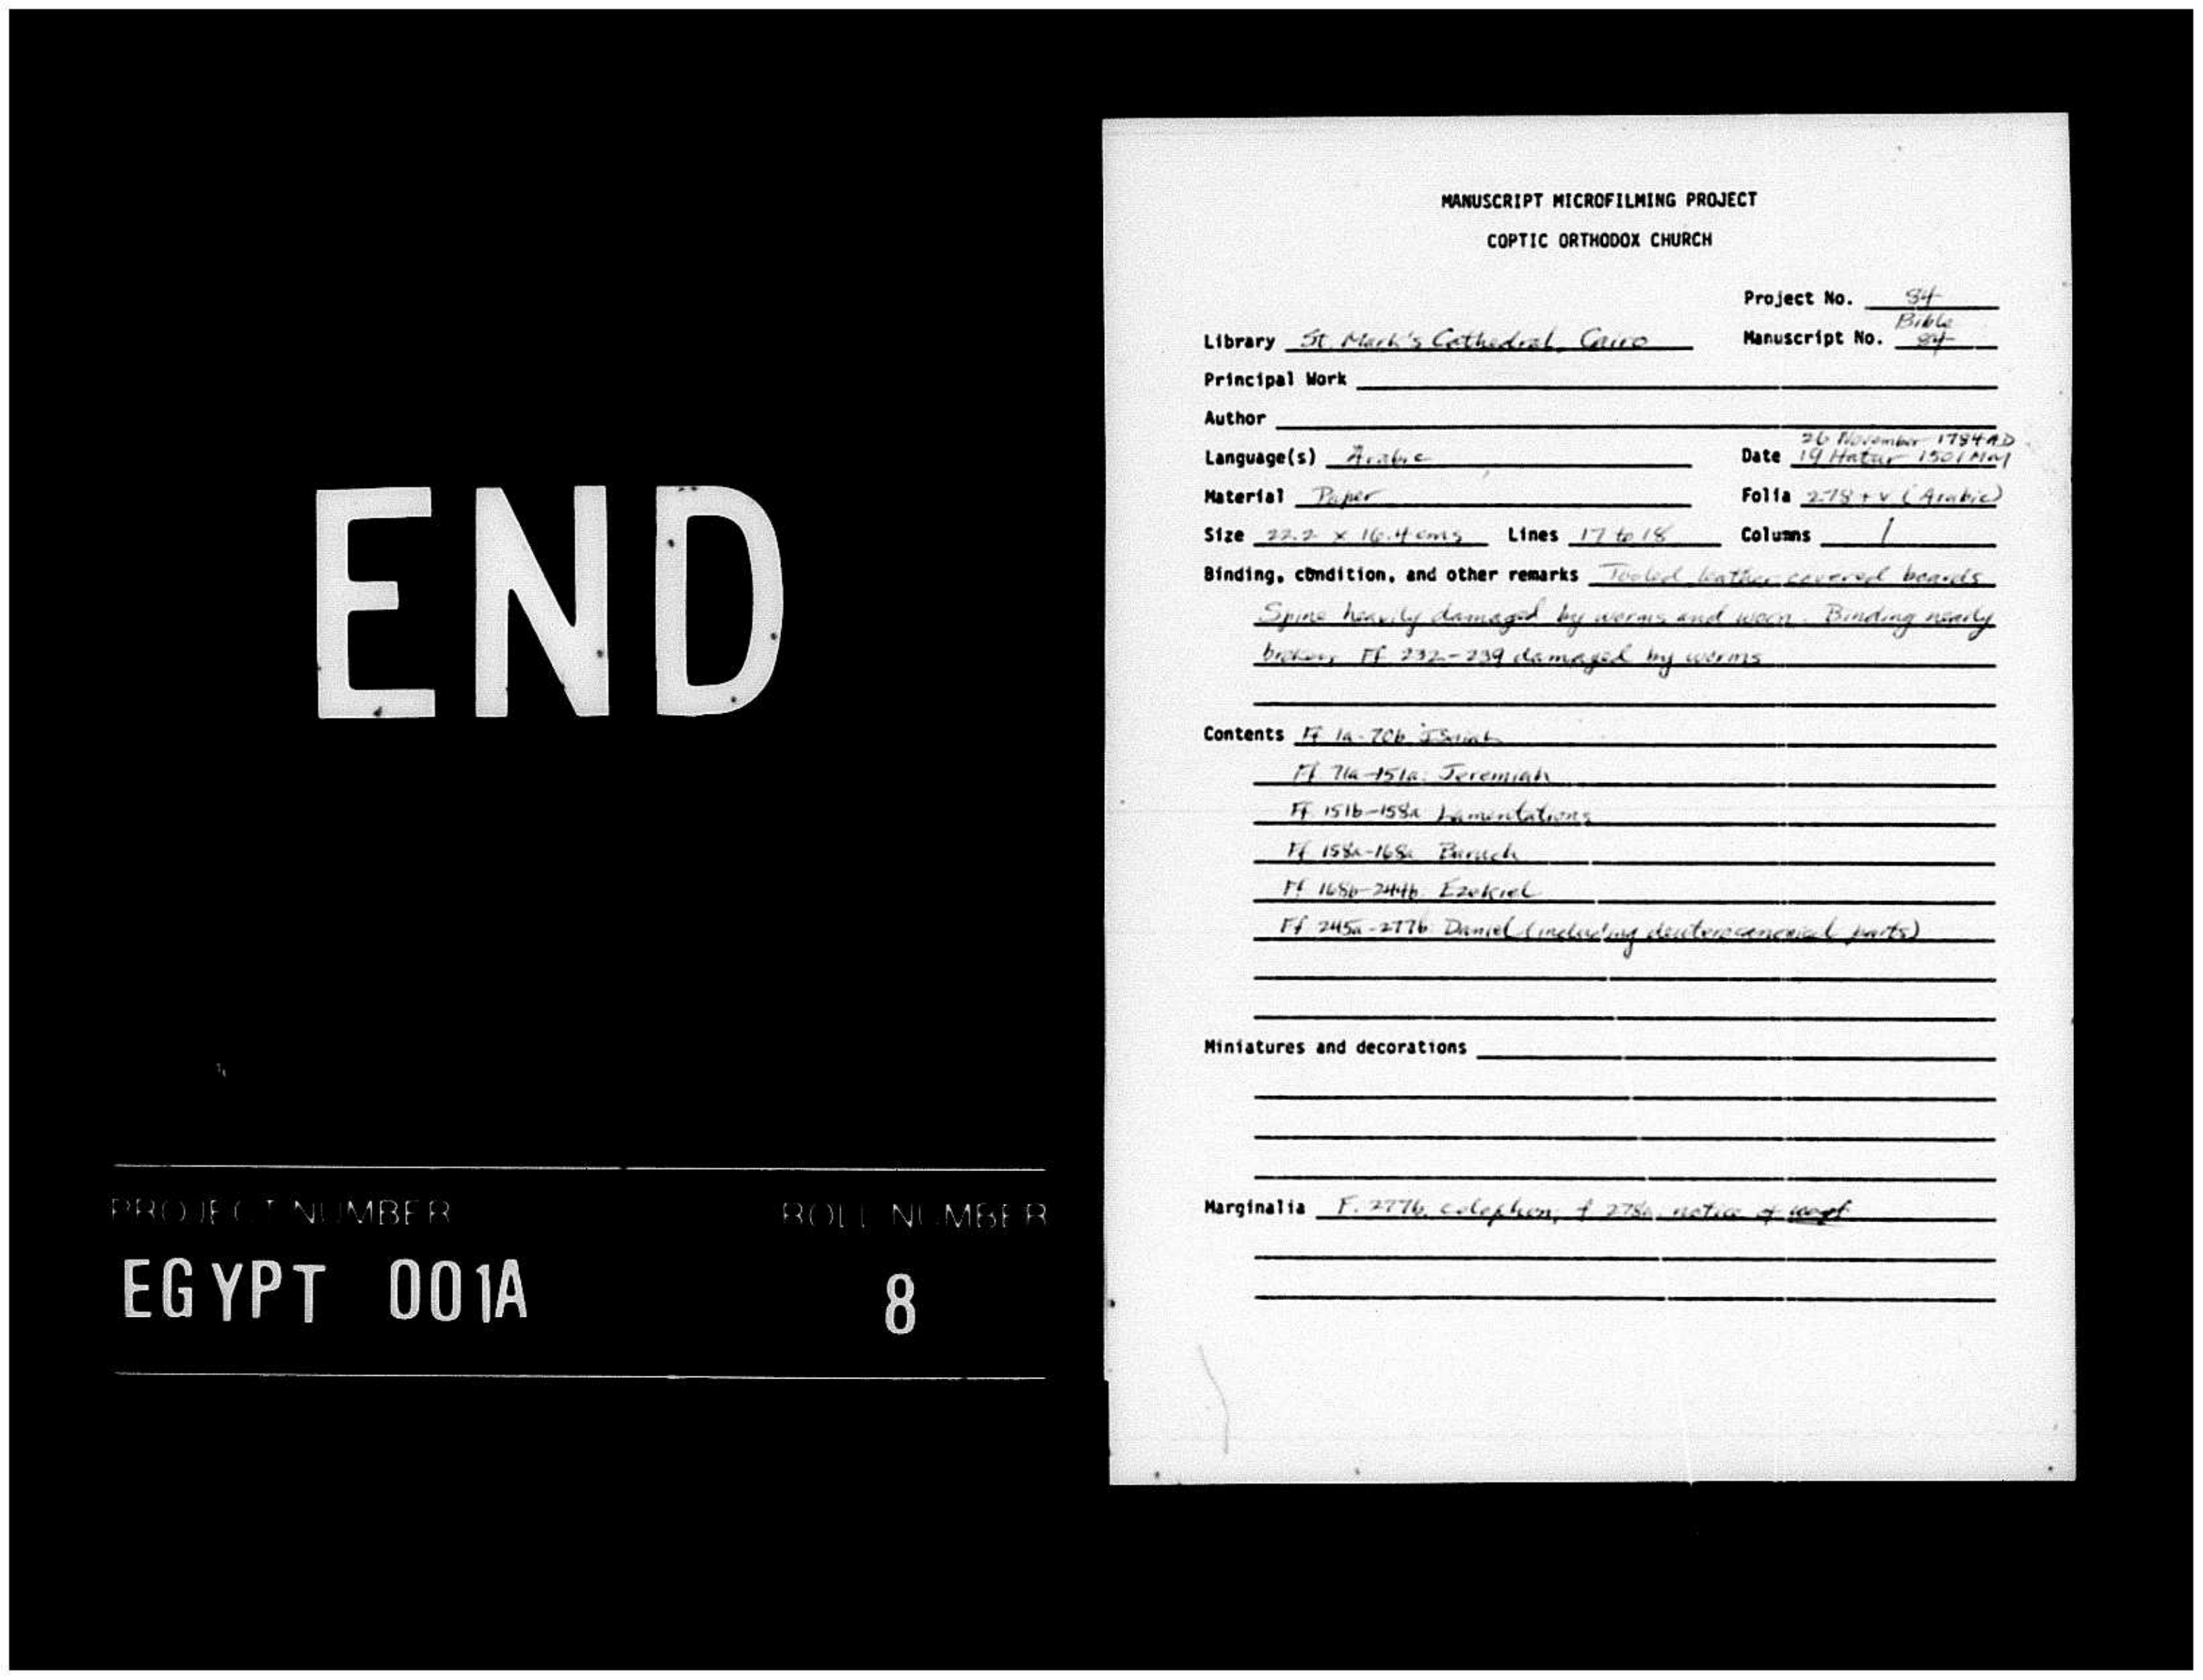 END
PROJECT NUMBER
ROLL NUMBER
EGYPT 001A
8
MANUSCRIPT MICROFILMING PROJECT
COPTIC ORTHODOX CHURCH
Project No. 84
Library St. Mark's Cathedral, Cairo
Manuscript No. Bible 84
Principal Work
Author
Language(s) Arabic
Date 26 November 1784 AD
19 Hatur 1501 MM
Material Paper
Folia 278 + v (Arabic)
Size 22.2 x 16.4 cms Lines 17 to 18 Columns 1
Binding, condition, and other remarks Tooled leather covered boards
Spine heavily damaged by worms and worn. Binding nearly
broken, Ff 232-239 damaged by worms
Contents Ff 1a-70b Isaiah
Ff 71a-151a: Jeremiah
Ff 151b-158a Lamentations
Ff 158a-168a Baruch
Ff 168b-244b. Ezekiel
Ff 245a-277b: Daniel (including deuterocanonical parts)
Miniatures and decorations
Marginalia F. 277b, colophon; f 278a, notice of waqf